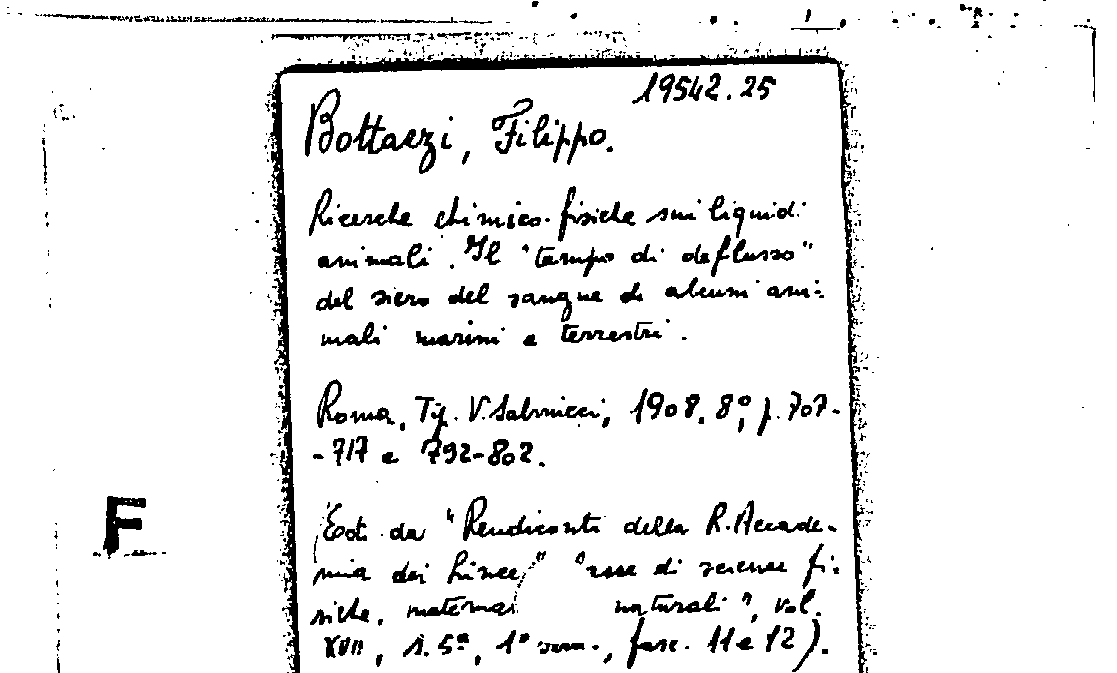 19542.25
Bottazzi, Filippo.
Ricerche chimico-fisiche sui liquidi
animali. Il "tempo di deflusso"
del siero del sangue di alcuni ani-
mali marini e terrestri.
Roma, Tip. V. Salviucci, 1908, 8°, p. 707-
-717 e 792-802.
F
(Est. da "Rendiconti della R. Accade-
mia dei Lincei" di scienze fi-
siche, naturali", vol.
XVII, s. 5ª, 1° sem., fasc. 11 e 12).